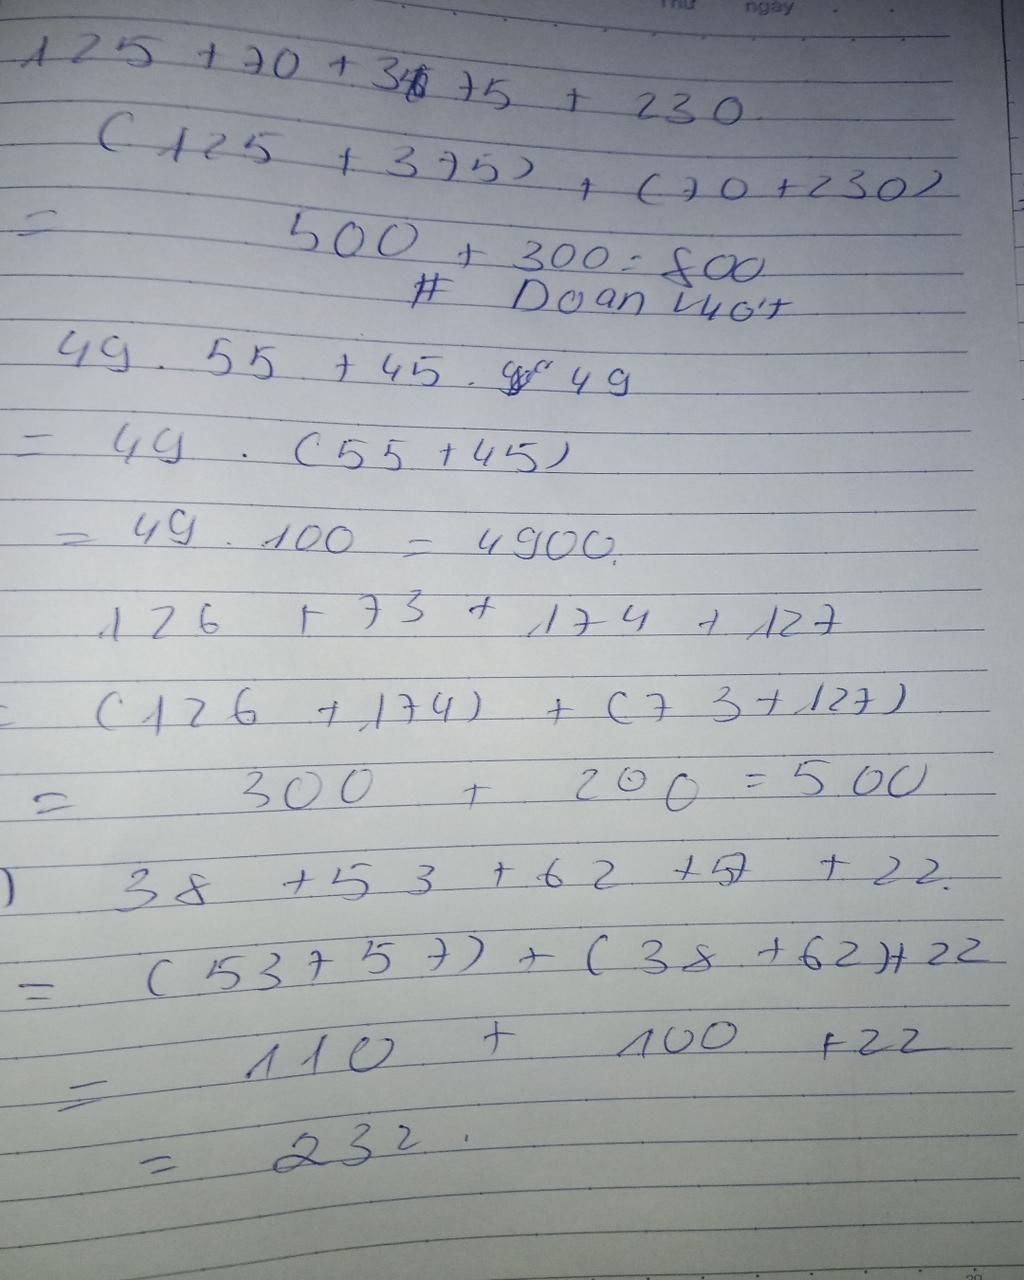 Thứ ngày
125 + 70 + 375 + 230
(125 + 375) + (70 + 230)
= 500 + 300 = 800
# Doan
49 . 55 + 45 . 49
= 49 . (55 + 45)
= 49 . 100 = 4900.
126 + 73 + 174 + 127
= (126 + 174) + (73 + 127)
= 300 + 200 = 500
) 38 + 53 + 62 + 57 + 22.
= (53 + 57) + (38 + 62) + 22
= 110 + 100 + 22
= 232.